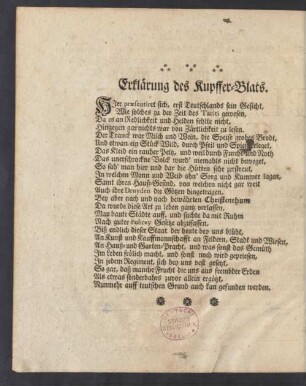 Erklärung des Kupffer-Blats.
HIer præsentirt sich, erst Teutschlands sein Gesicht,
Wie solches zu der Zeit des Taciti gewesen,
Da es an Redlichkeit und Helden fehlte nicht,
Hingegen gar nichts war von Zärtlichkeit zu lesen.
Der Tranck war Milch und Wein, die Speise grobes Brodt,
Und etwan ein Stück Wild, durch Pfeil und Spieß erleget.
Das Kleid ein rauher Peltz, und weil durch Feind und Noth
Das unerschrockne Volck wurd' niemahls nicht beweget,
So sieh' man hier und dar die Hütten sehr zerstreut,
In welchen Mann und Weib ohn' Sorg und Kummer lagen,
Samt ihrem Hauß-Gesind, von welchen nicht gar weit
Auch ihre Druyden die Götzen hingetragen.
Bey aber nach und nach bewährten Christenthum
Da wurde diese Art zu leben gantz verlassen,
Man baute Städte auff, und suchte da mit Ruhm
Nach guter Policey Gesetze abzufassen.
Biß endlich dieser Staat der heute bey uns blüht,
An Kunst und Kauffmannschafft an Feldern, Stadt und Wiesen,
An Hauß- und Garten-Pracht, und was sonst das Gemüth
Im Leben frölich macht, und sonst mehr wird gepriesen,
In jedem Regiment, sich bey uns vest gesetzt,
So gar, daß manche Frucht die uns aus frembder Erden
Als etwas sonderbahrs zuvor allein ergötzt,
Nunmehr auff teutschen Grund auch kan gefunden werden.